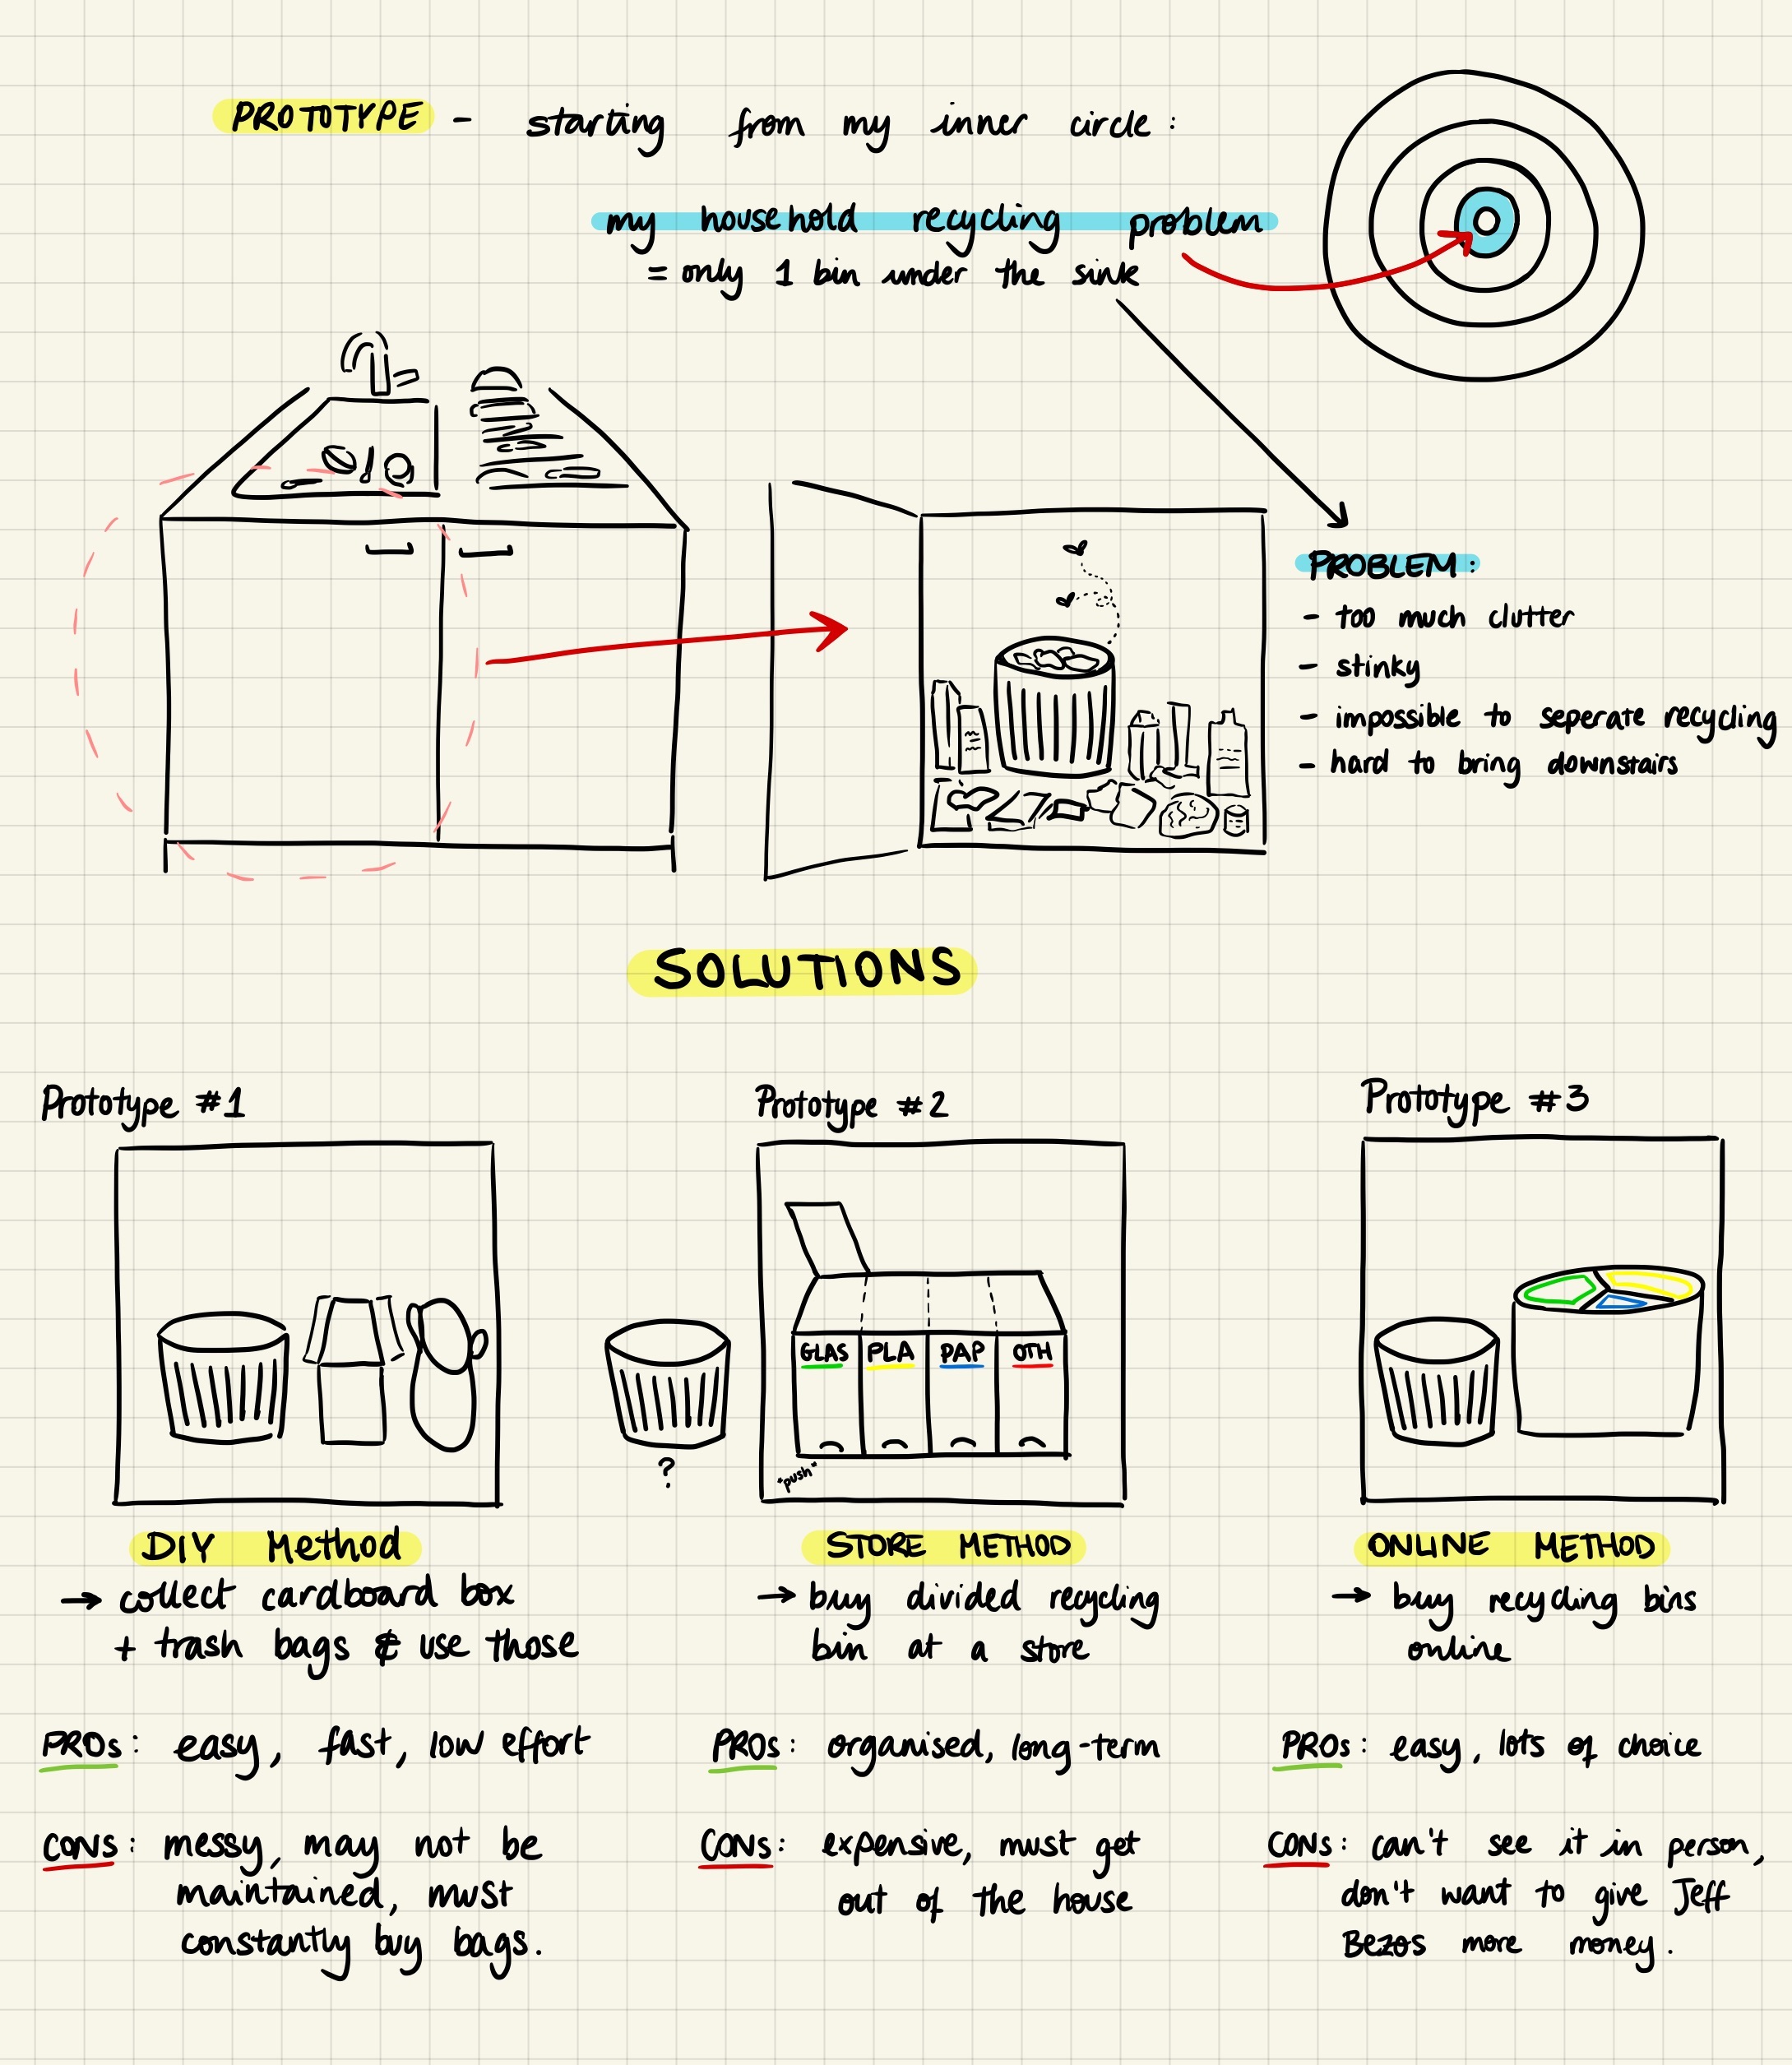 PROTOTYPE - starting from my inner circle:
my household recycling problem
= only 1 bin under the sink
PROBLEM:
- too much clutter
- stinky
- impossible to seperate recycling
- hard to bring downstairs
SOLUTIONS
Prototype #1
Prototype #2
Prototype #3
GLAS PLA PAP OTH
?
"push"
DIY Method
→ collect cardboard box
+ trash bags & use those
PROs: easy, fast, low effort
CONS: messy, may not be
maintained, must
constantly buy bags.
STORE METHOD
→ buy divided recycling
bin at a store
PROs: organised, long-term
CONs: expensive, must get
out of the house
ONLINE METHOD
→ buy recycling bins
online
PROs: easy, lots of choice
CONs: can't see it in person,
don't want to give Jeff
Bezos more money.